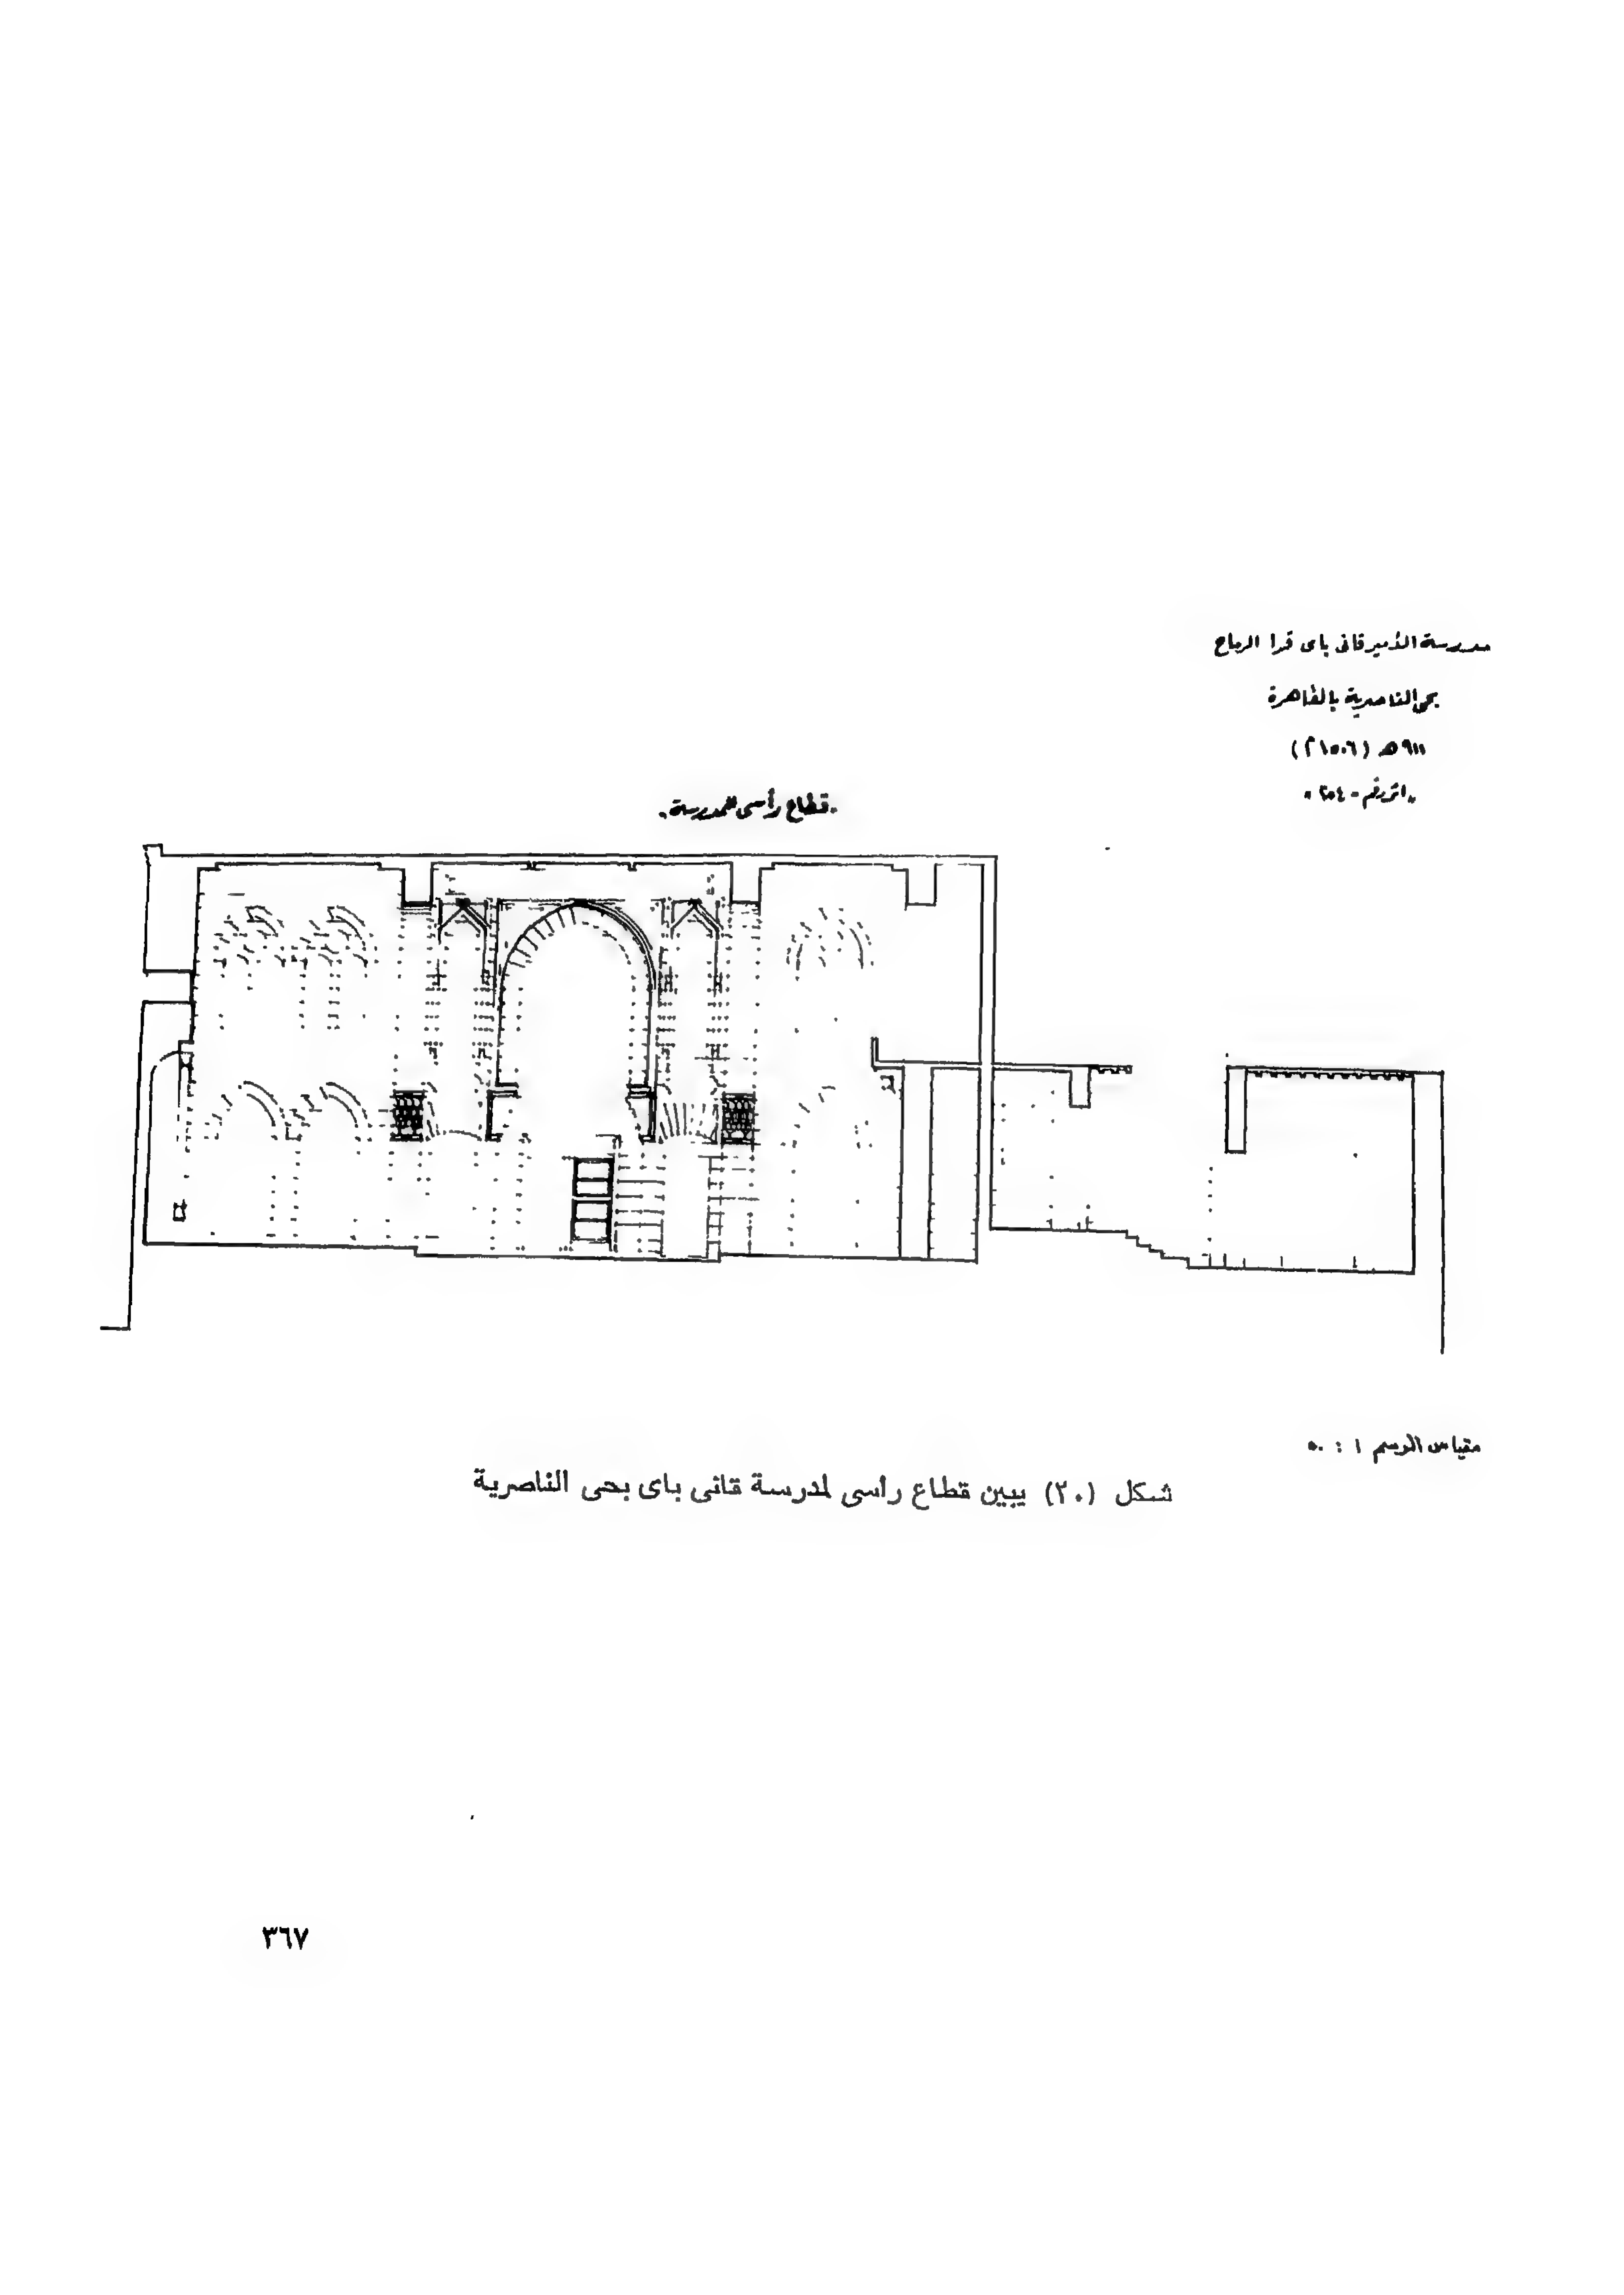 مدرسة الأمير قانى باى قرا الرماح
بحى الناصرية بالقاهرة
٩١١ هـ (١٥٠٦ م)
"اثر رقم - ٢٥٤"
قطاع رأسى للمدرسة.
مقياس الرسم ١ : ٥٠
شكل (٢٠) يبين قطاع رأسى لمدرسة قانى باى بحى الناصرية
٣٦٧